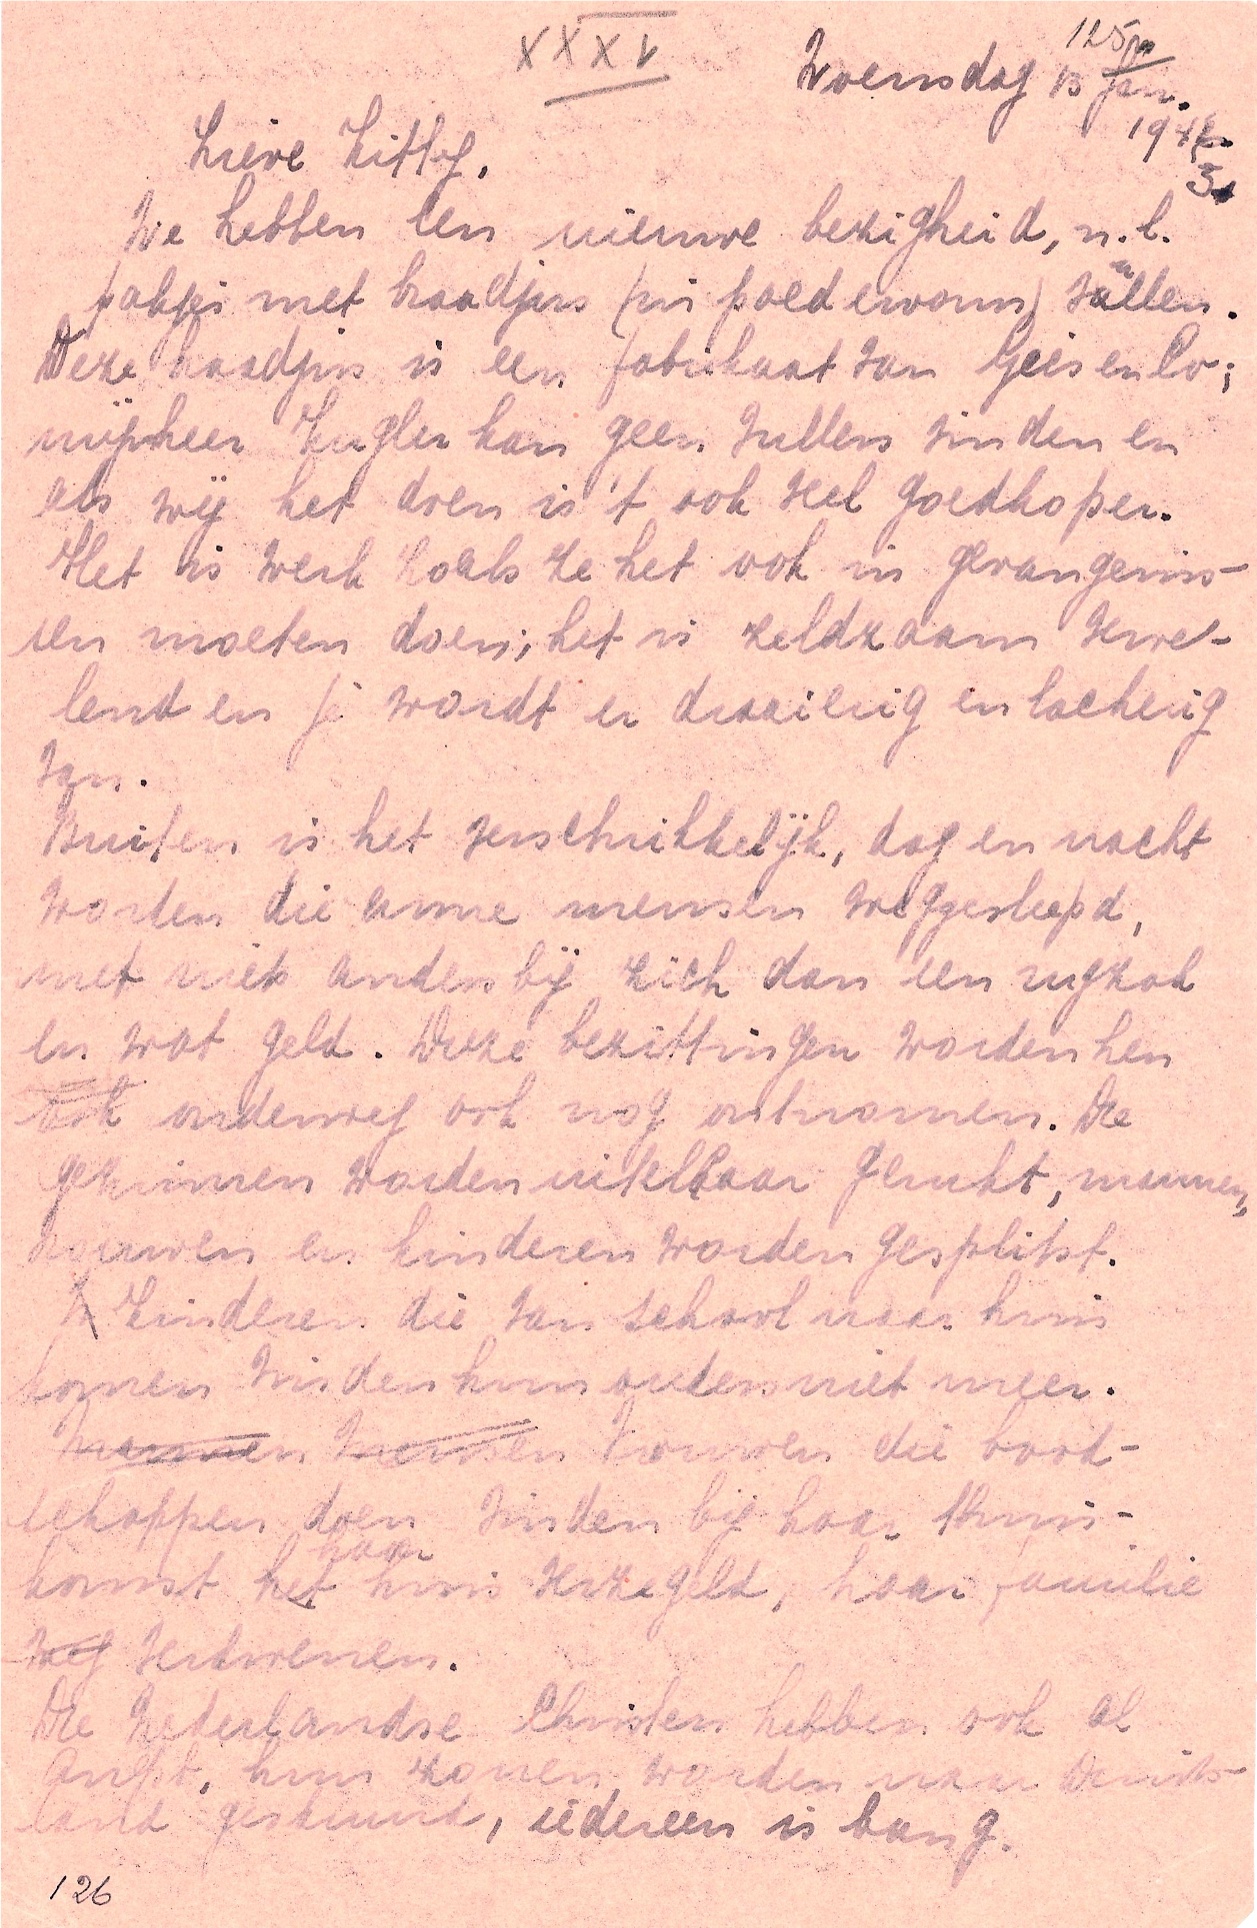 XXXV
125
Woensdag 13 Jan.
1942
3.
Lieve Kitty,
We hebben een nieuwe bezigheid, n.l.
pakjes met braadjus (in poedervorm) vullen.
Deze braadjus is een fabrikaat van Gies en Co;
mijnheer Kugler kan geen vullers vinden en
als wij het doen is 't ook veel goedkoper.
Het is werk zoals ze het ook in gevangenis-
sen moeten doen; het is zeldzaam verve-
lend en je wordt er draaierig en lacherig
van.
Buiten is het verschrikkelijk, dag en nacht
worden die arme mensen weggesleept,
met niets anders bij zich dan een rugzak
en wat geld. Deze bezittingen worden hen
ook onderweg ook nog ontnomen. De
gezinnen worden uitelkaar gerukt, mannen,
vrouwen en kinderen worden gesplitst.
Kinderen die van school naar huis
komen vinden hun ouders niet meer.
Vrouwen die bood-
schappen doen vinden bij haar thuis-
haar
komst het huis verzegeld, haar familie
weg verdwenen.
De Nederlandse Christen hebben ook al
angst, hun zonen worden naar Duits-
land gestuurd, iedereen is bang.
126